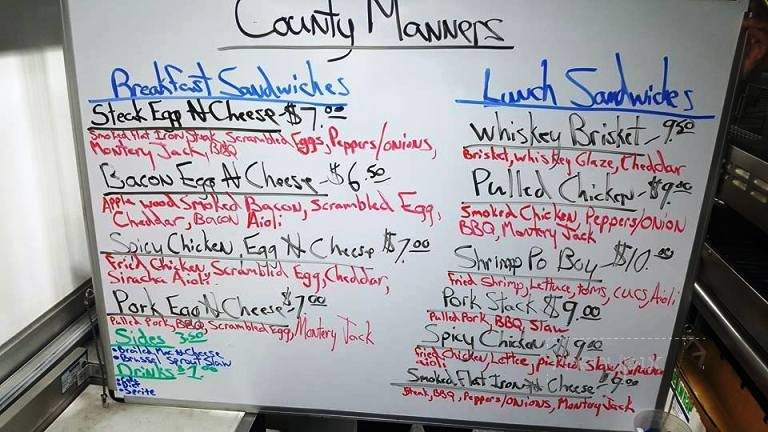 County Manners
Breakfast Sandwiches
Steak Egg N Cheese - $7.00
Smoked Flat Iron Steak, Scrambled Eggs, Peppers/onions,
Monterey Jack, BBQ
Bacon Egg N Cheese - $6.50
Apple wood Smoked Bacon, Scrambled Egg,
Cheddar, Bacon Aioli
Spicy Chicken, Egg N Cheese $7.00
Fried Chicken, Scrambled Egg, Cheddar,
Siracha Aioli
Pork Egg N Cheese - $7.00
Pulled Pork, BBQ, Scrambled Egg, Montery Jack
Sides 3.50
Mac N Cheese
Brussel Sprout Slaw
Drinks $1.00
Sprite
Lunch Sandwiches
Whiskey Brisket - 9.50
Brisket, whiskey Glaze, Cheddar
Pulled Chicken - $9.00
Smoked Chicken, Peppers/ONION
BBQ, Montery Jack
Shrimp Po Boy - $10.00
Fried Shrimp, Lettuce, toms, cucs, Aioli
Pork Stack $9.00
Pulled Pork, BBQ, Slaw
Spicy Chicken $9.00
Fried Chicken, Lettce, pickled Slaw,
aioli
Smoked Flat Iron N Cheese $9.00
Steak, BBQ, Peppers/ONIONS, Montery Jack